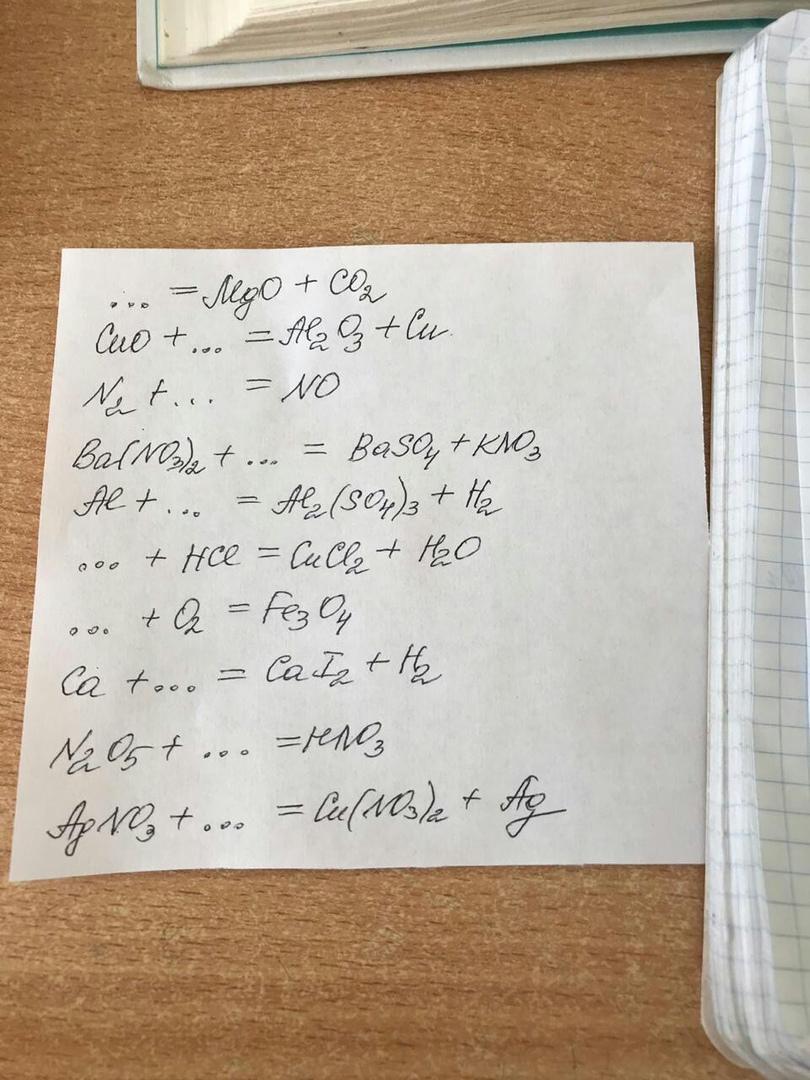 ... = MgO + CO₂
CuO + ... = Al₂O₃ + Cu
N₂ + ... = NO
Ba(NO₃)₂ + ... = BaSO₄ + KNO₃
Al + ... = Al₂(SO₄)₃ + H₂
... + HCl = CuCl₂ + H₂O
... + O₂ = Fe₃O₄
Ca + ... = CaI₂ + H₂
N₂O₅ + ... = HNO₃
AgNO₃ + ... = Cu(NO₃)₂ + Ag